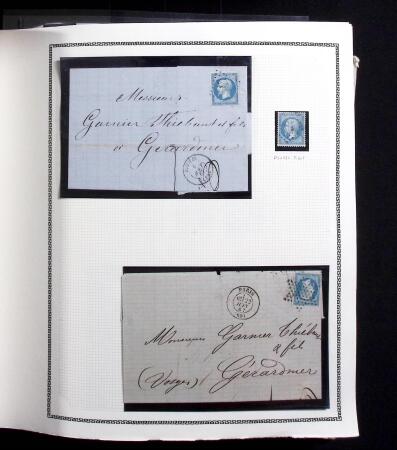 Messieurs
Garnier Thiebaut et fils
à Gérardmer
PARIS
(60)
Monsieur Garnier Thiebau
& fil
(Vosges) Gérardmer